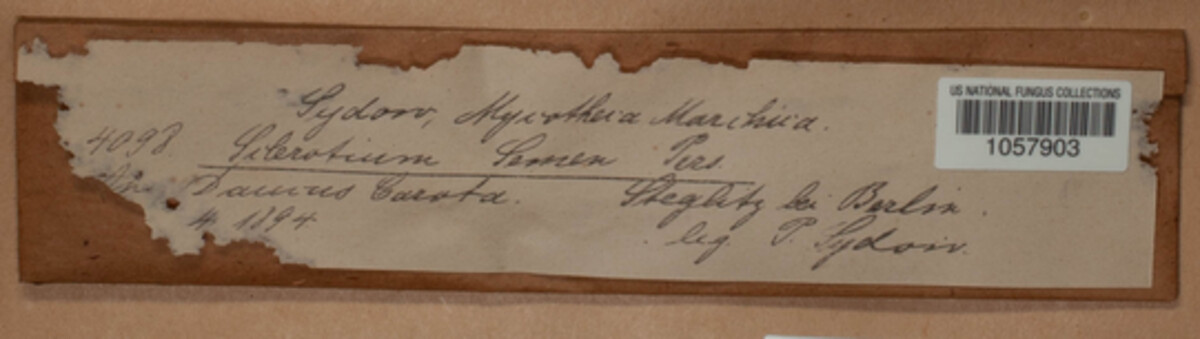 Sydow, Mycotheca Marchica.
4098. Sclerotium Semen Pers.
An Daucus Carota. Steglitz bei Berlin.
4 1894 leg. P. Sydow.
US NATIONAL FUNGUS COLLECTIONS
1057903